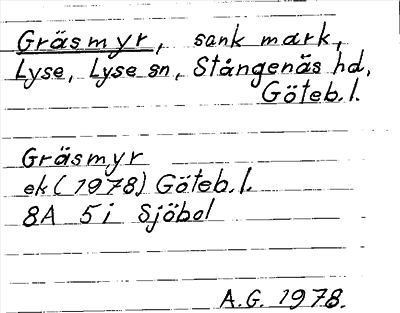 Gräsmyr, sank mark,
Lyse, Lyse sn, Stångenäs hd,
Göteb. l.
Gräsmyr
ek (1978) Göteb. l.
8A 5i Sjöbol
A.G. 1978.